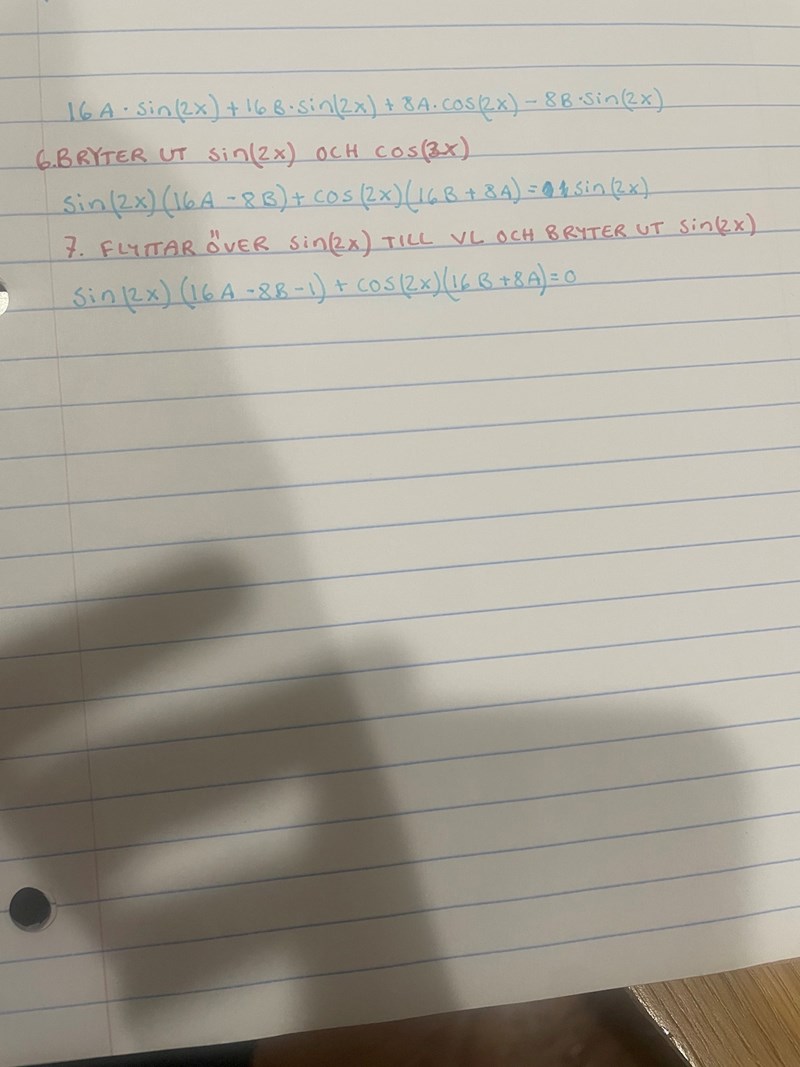 16A · sin(2x) + 16B · sin(2x) + 8A · cos(2x) - 8B · sin(2x)
6. BRYTER UT sin(2x) OCH cos(2x)
sin(2x)(16A - 8B) + cos(2x)(16B + 8A) = 1 sin(2x)
7. FLYTTAR ÖVER sin(2x) TILL VL OCH BRYTER UT sin(2x)
sin(2x)(16A - 8B - 1) + cos(2x)(16B + 8A) = 0